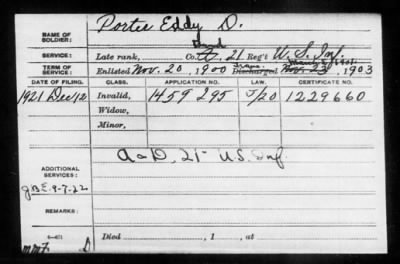 NAME OF SOLDIER: Porter Eddy D.
Band
SERVICE: Late rank, Co. A, 21 Reg't U. S. Inf.
TERM OF SERVICE: Enlisted Nov. 20, 1900 Discharged Nov. 23, 1903
DATE OF FILING. CLASS. APPLICATION NO. LAW. CERTIFICATE NO.
1921 Dec 12 Invalid, 1459295 J/20 1229660
Widow,
Minor,
ADDITIONAL SERVICES: A & D, 21 U.S. Inf.
J.B.E. 9-7-22
REMARKS:
Died , 1 , at